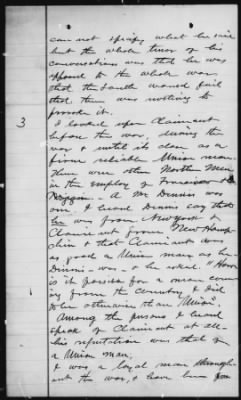 can not specify what he said
but the whole tenor of his
conversations was that he was
opposed to the whole war
that the South would fail
that there was nothing to
provoke it.
3
I looked upon Claimant
before the war, during the
war & until its close as a
firm reliable Union man
there were other Northern Men
in the employ of
A Mr Dennis was
one, I heard Dennis say that
he was from New York &
Claimant from New Hamp
shire & that Claimant was
as good a Union man as he
Dennis was & he asked "How
is it possible for a man com
ing from the Country I did
to be otherwise than Union".
Among the persons I heard
speak of Claimant at all
his reputation was that of
a Union man,
I was a loyal man through
out the war, & have been